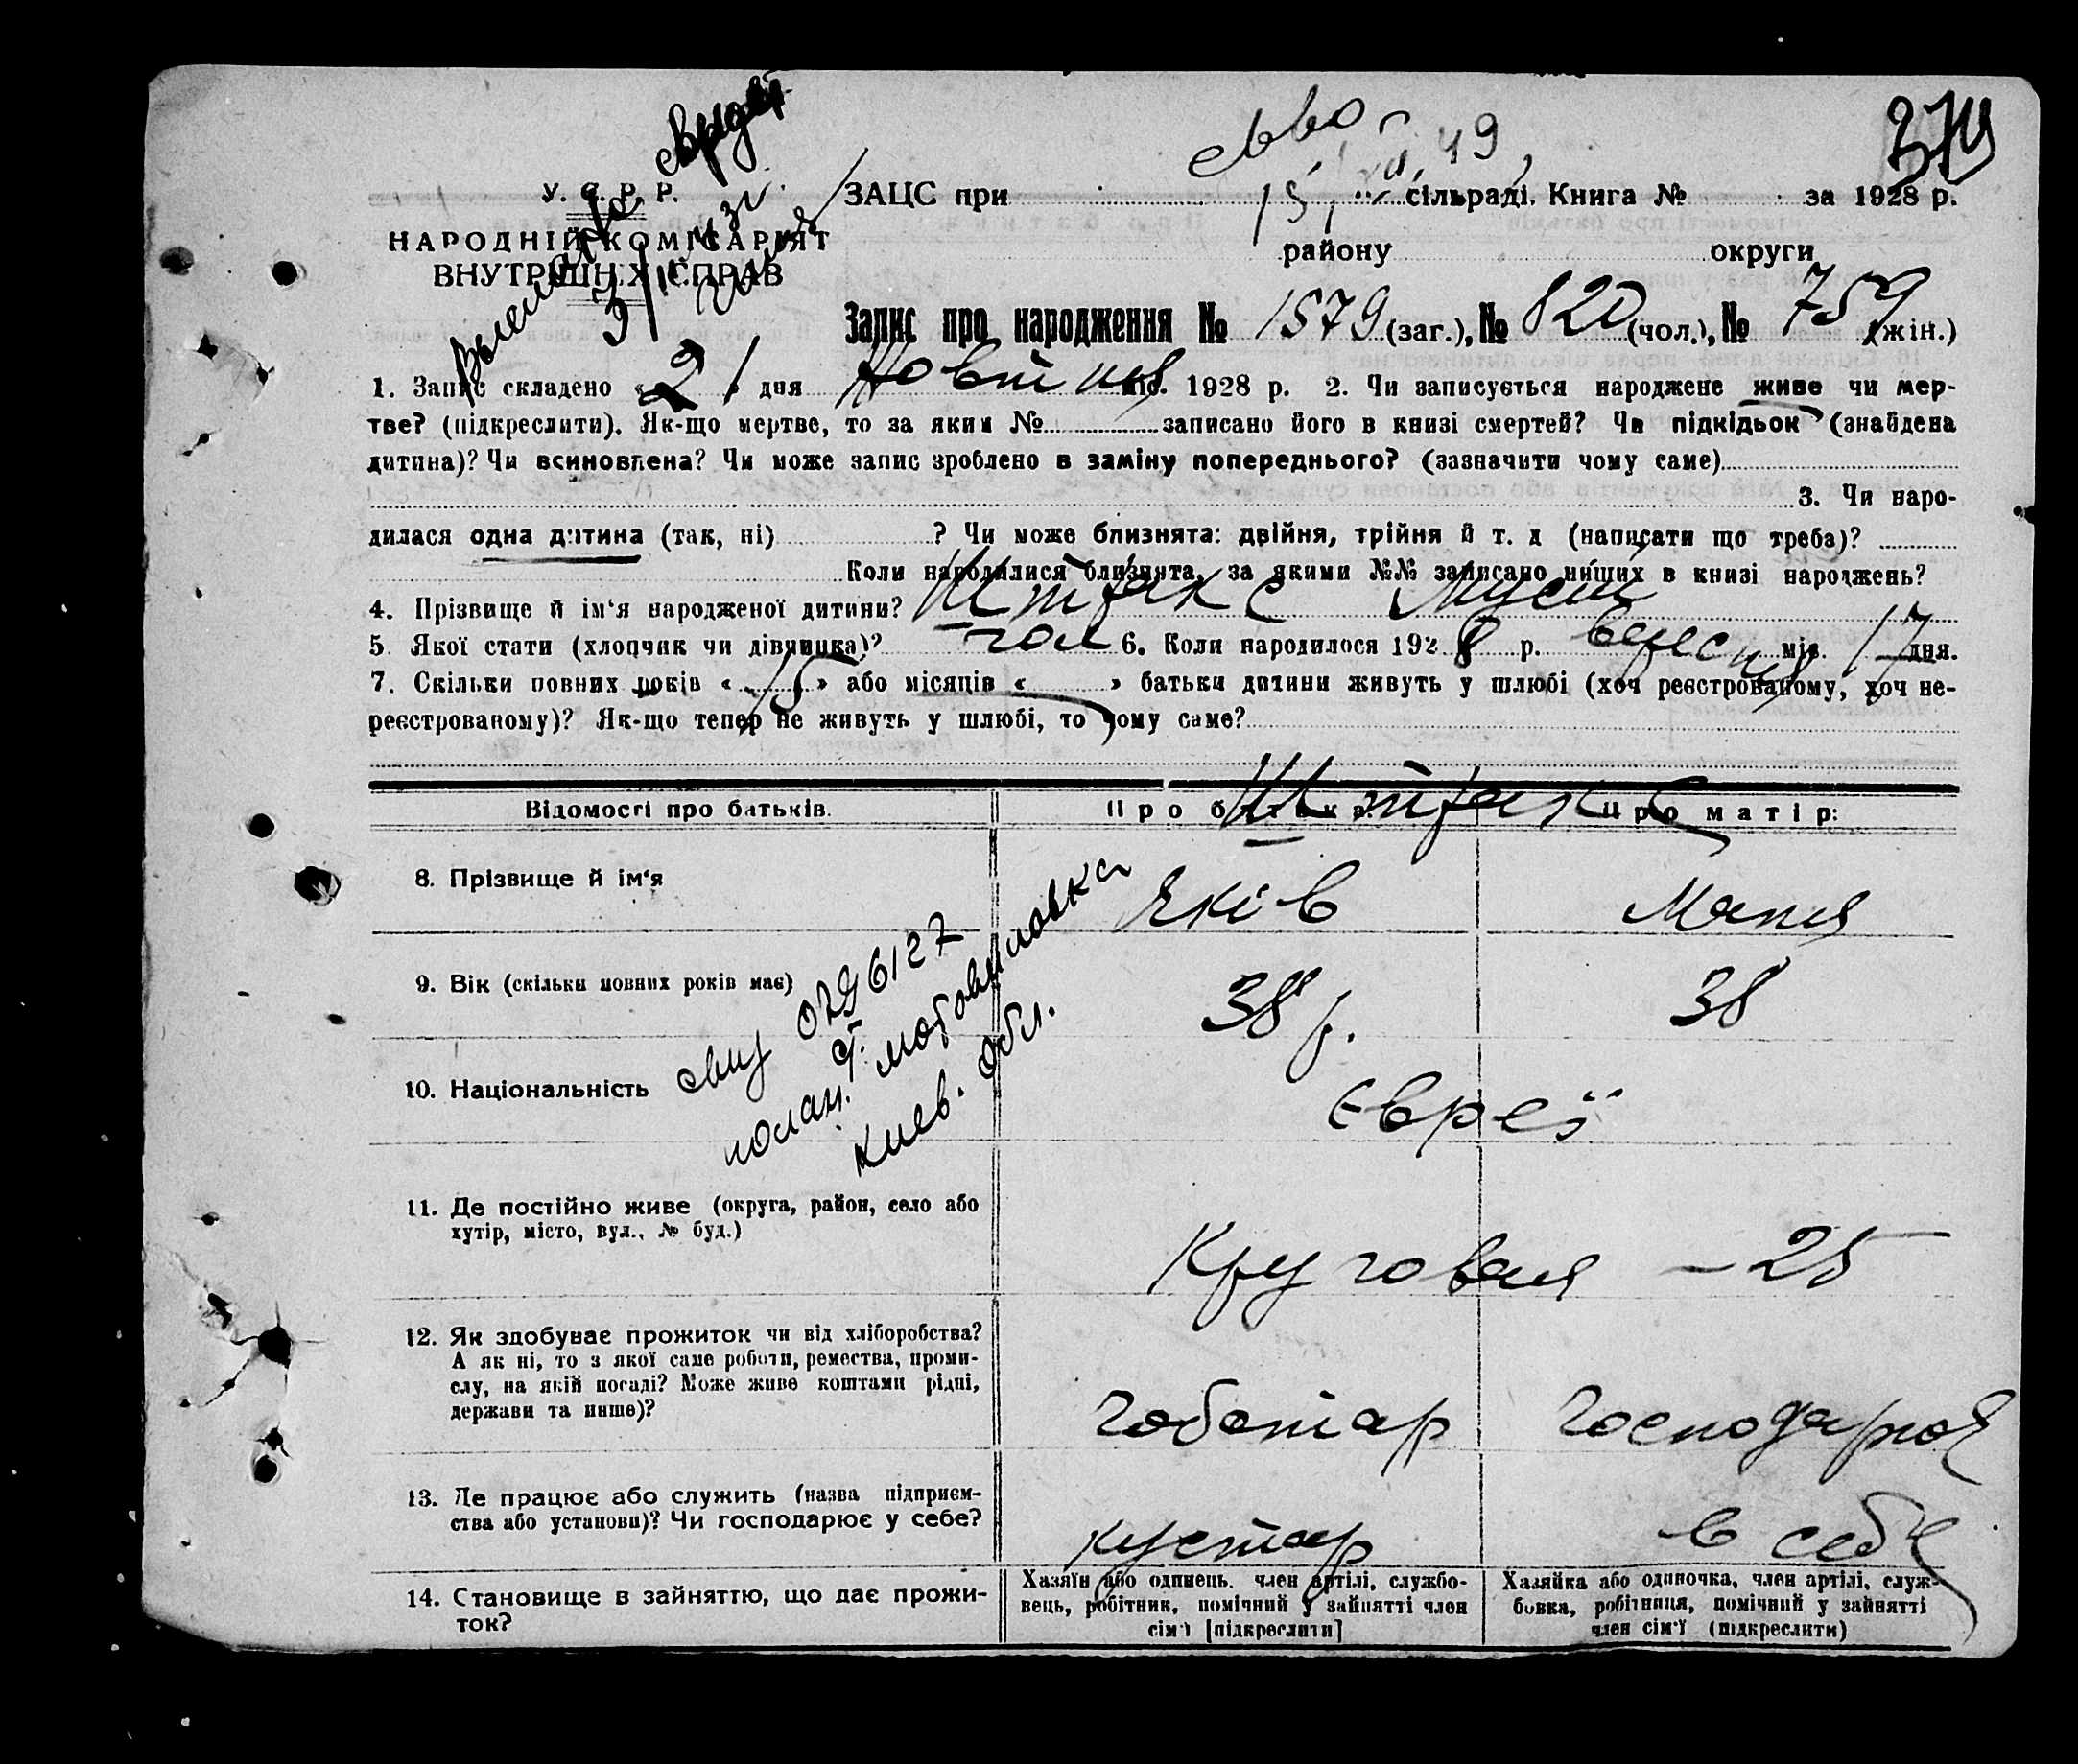 374
У. С. Р. Р.
НАРОДНІЙ КОМІСАРІЯТ
ВНУТРІШНІХ СПРАВ
ЗАЦС при сільраді. Книга № за 1928 р.
району округи
Запис про народження № 1579 (заг.), № 820 (чол.), № 759 (жін.)
1. Запис складено « 21 » дня Новтня міс. 1928 р. 2. Чи записується народжене живе чи мер-
тве? (підкреслити). Як-що мертве, то за яким № записано його в книзі смертей? Чи підкідьок (знайдена
дитина)? Чи всиновлена? Чи може запис зроблено в заміну попереднього? (зазначити чому саме)
3. Чи наро-
дилася одна дитина (так, ні) ? Чи може близнята: двійня, трійня й т. д (написати що треба)?
Коли народилися близнята, за якими №№ записано инших в книзі народжень?
4. Прізвище й ім‘я народженої дитини? Штракс Мусій
5. Якої стати (хлопчик чи дівчинка)? чол 6. Коли народилося 1928 р. вересня міс. 17 дня.
7. Скільки повних років « 15 » або місяців « » батьки дитини живуть у шлюбі (хоч реєстрованому, хоч не-
реєстрованому)? Як-що тепер не живуть у шлюбі, то чому саме?
Штракс
Відомості про батьків. Про батька: Про матір:
8. Прізвище й ім‘я Яків Маня
9. Вік (скільки повних років має) 38 р. 38
10. Національність Євреї
свид 0796127
Киев. обл.
11. Де постійно живе (округа, район, село або
хутір, місто, вул., № буд.)
Круговая – 25
12. Як здобуває прожиток чи від хліборобства?
А як ні, то з якої саме роботи, ремества, проми-
слу, на якій посаді? Може живе коштами рідні,
держави та инше)?
Чоботар Господарює
13. Де працює або служить (назва підприєм-
ства або установи)? Чи господарює у себе?
кустар в себе
14. Становище в зайняттю, що дає прожи-
ток?
Хазяїн або одинець, член артілі, службо-
вець, робітник, помічний у зайнятті член
сім‘ї [підкреслити]
Хазяйка або одиночка, член артілі, служ-
бовка, робітниця, помічний у зайнятті
член сім‘ї (підкреслити)